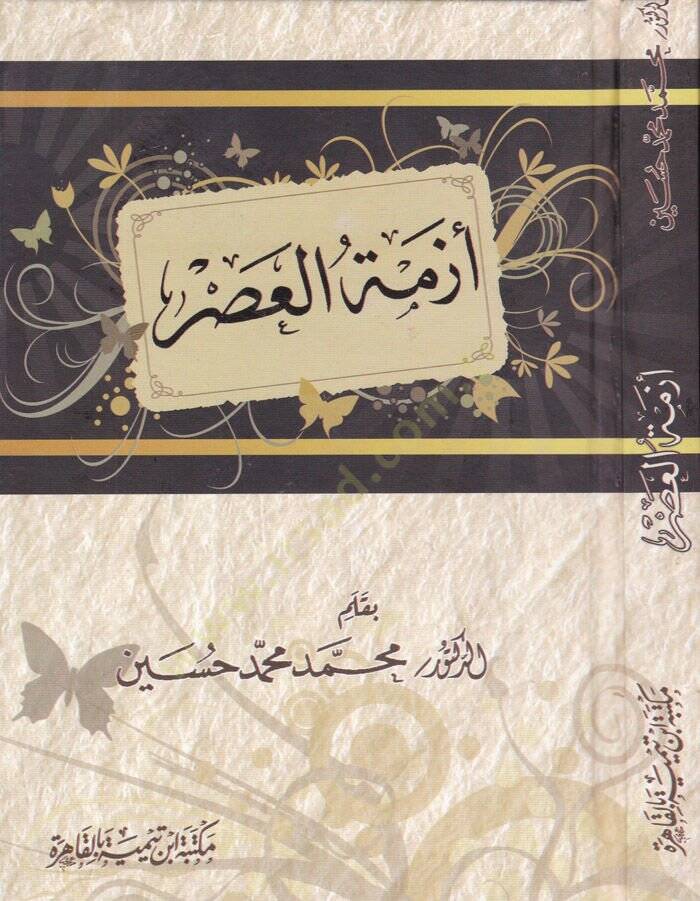 أزمة العصر
بقلم
الدكتور محمد محمد حسين
مكتبة ابن تيمية بالقاهرة
الدكتور محمد محمد حسين
أزمة العصر
مكتبة ابن تيمية بالقاهرة